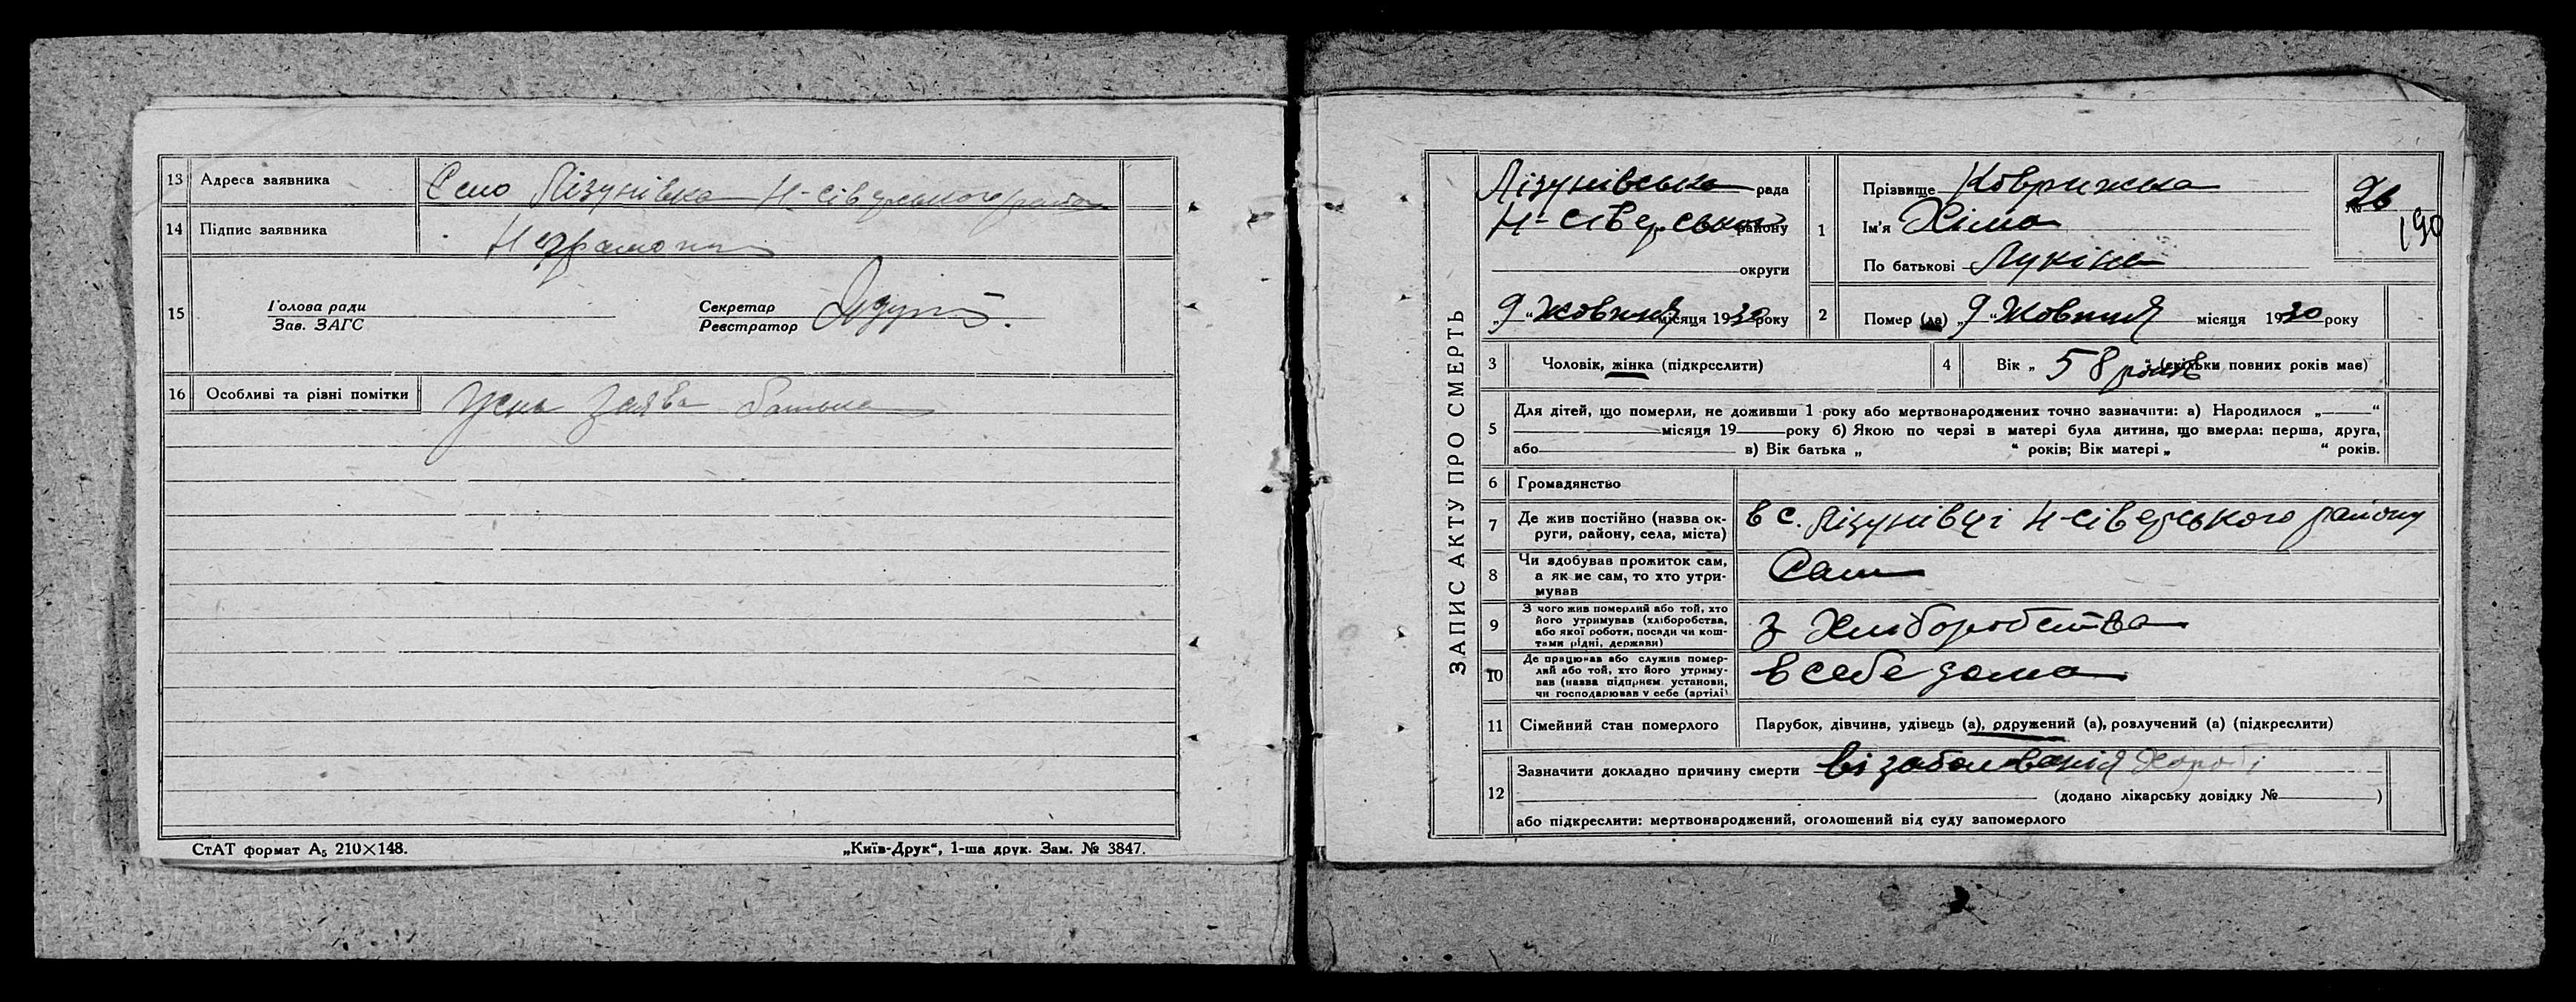 13 Адреса заявника Село Лізунівка Н-Сіверського району
14 Підпис заявника Неграмотн
15 Голова ради
Зав. ЗАГС
Секретар
Реєстратор
16 Особливі та різні помітки Усна заява батька
СтАТ формат А₅ 210×148.
„Київ-Друк“, 1-ша друк. Зам. № 3847.
ЗАПИС АКТУ ПРО СМЕРТЬ
Лізунівська рада
Н-Сіверськог району
округи
„9“ Жовтня місяця 1930 року
1 Прізвище Коврижка
Ім'я Хіма
По батькові Лукіна
№ 26
190
2 Помер (ла) „9“ Жовтня місяця 1930 року
3 Чоловік, жінка (підкреслити)
4 Вік „58 років“ (скільки повних років має)
5 Для дітей, що померли, не доживши 1 року або мертвонароджених точно зазначити: а) Народилося „ “
місяця 19 року б) Якою по черзі в матері була дитина, що вмерла: перша, друга,
або в) Вік батька „ “ років; Вік матері „ “ років.
6 Громадянство
7 Де жив постійно (назва ок-
руги, району, села, міста) в с. Лізунівці Н-Сіверського району
8 Чи здобував прожиток сам,
а як не сам, то хто утри-
мував Сам
9 З чого жив померлий або той, хто
його утримував (хліборобства,
або якої роботи, посади чи кош-
тами рідні, держави) З Хліборобства
10 Де працював або служив помер-
лий або той, хто його утриму-
вав (назва підприєм. установи,
чи господарював у себе (артілі) в себе дома
11 Сімейний стан померлого Парубок, дівчина, удівець (а), одружений (а), розлучений (а) (підкреслити)
12 Зазначити докладно причину смерти ві заболювання Хороті
(додано лікарську довідку № )
або підкреслити: мертвонароджений, оголошений від суду запомерлого